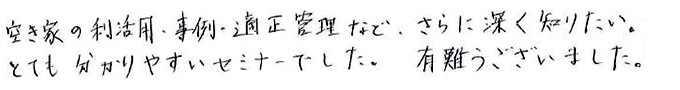 空き家の利活用・事例・適正管理など、さらに深く知りたい。
とても分かりやすいセミナーでした。 有難うございました。